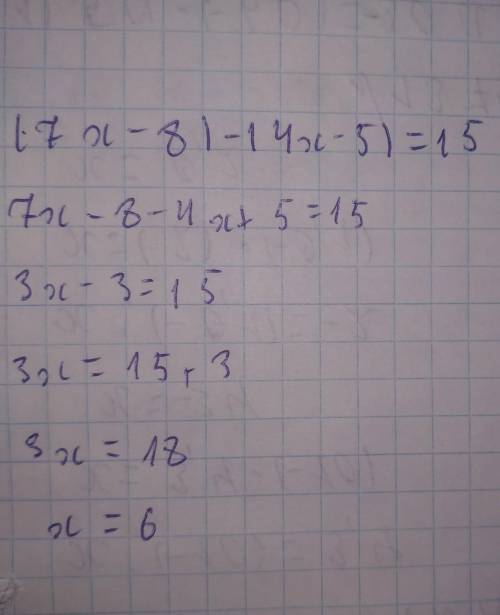 (7x - 8) - (4x - 5) = 15
7x - 8 - 4x + 5 = 15
3x - 3 = 15
3x = 15 + 3
3x = 18
x = 6